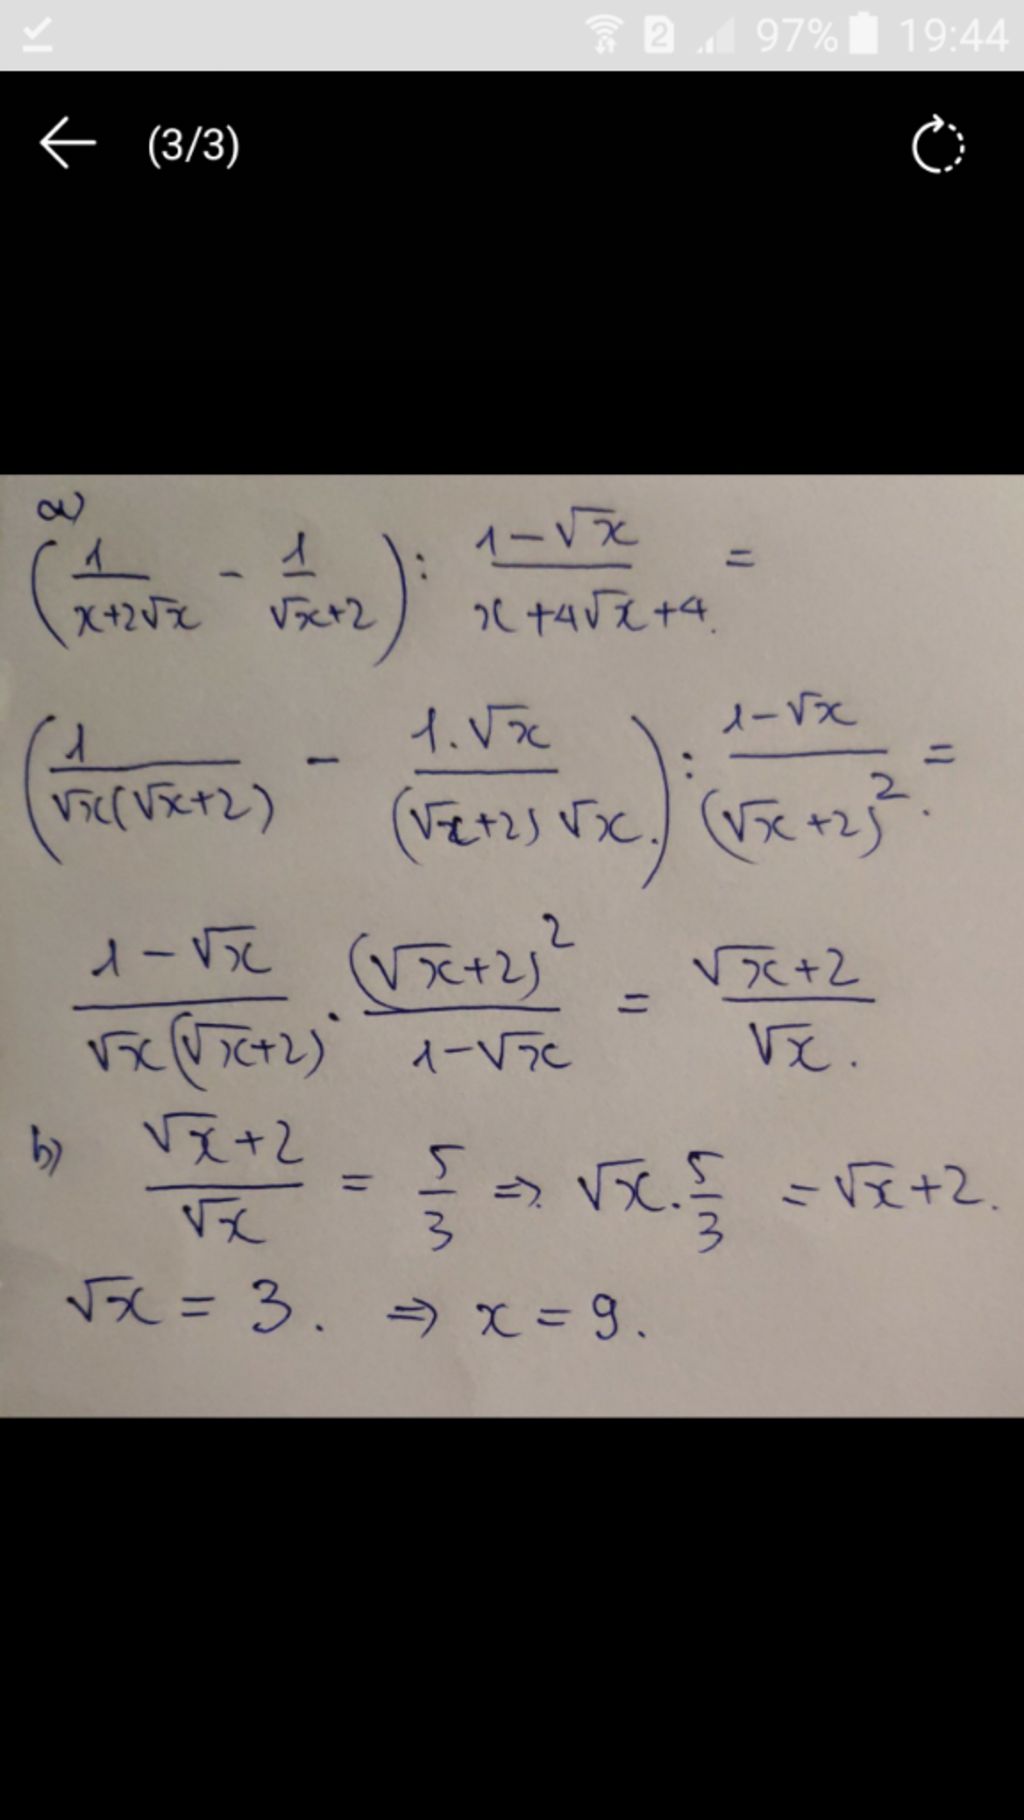 97% 19:44
(3/3)
a)
(1/(x+2√x) - 1/(√x+2)) : (1-√x)/(x+4√x+4) =
(1/(√x(√x+2)) - 1.√x/((√x+2)√x)) : (1-√x)/(√x+2)² =
(1-√x)/(√x(√x+2)) · (√x+2)²/(1-√x) = (√x+2)/√x.
b) (√x+2)/√x = 5/3 => √x.5/3 = √x+2.
√x = 3. => x = 9.